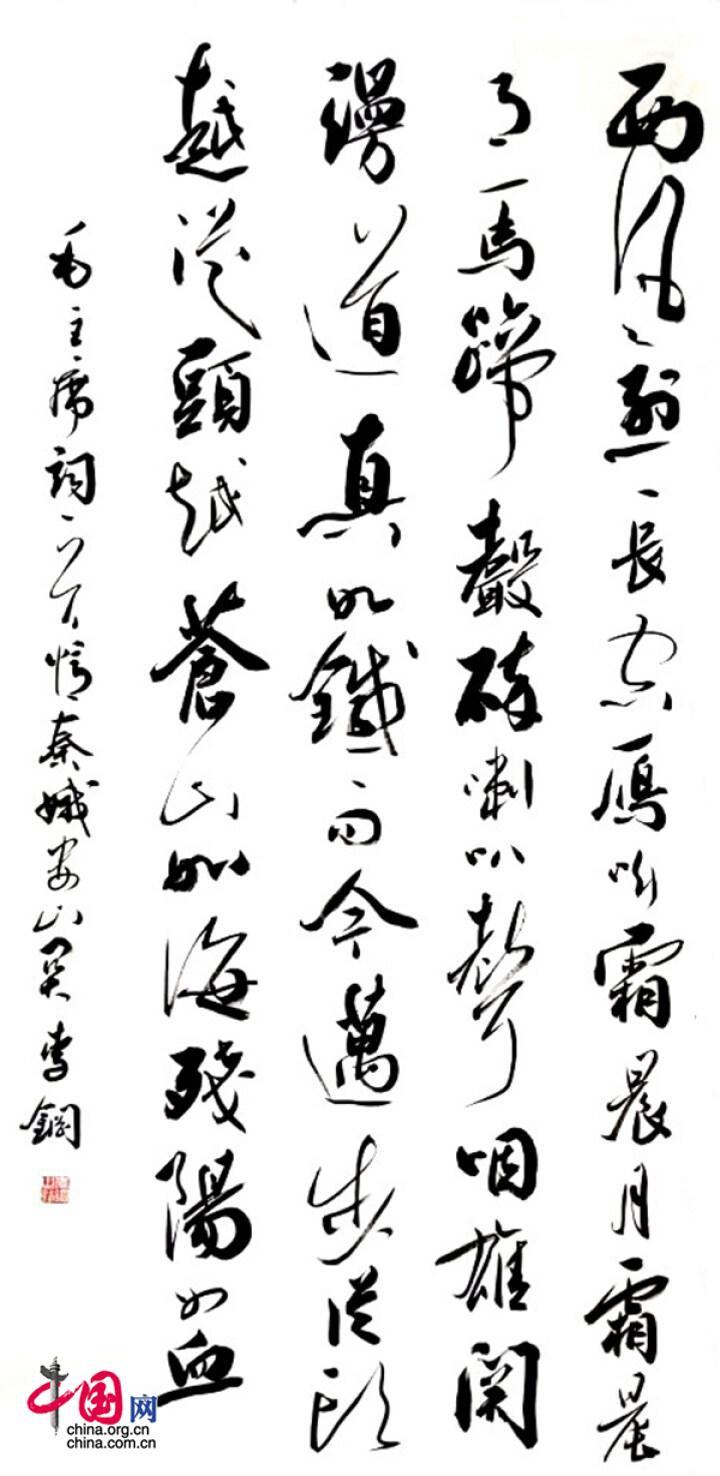 西風烈長空雁叫霜晨月霜晨
月馬蹄聲碎喇叭聲咽雄關
漫道真如鐵而今邁步從頭
越從頭越蒼山如海殘陽如血
毛主席詞一首憶秦娥婁山關李鋼
中国网
china.org.cn
china.com.cn